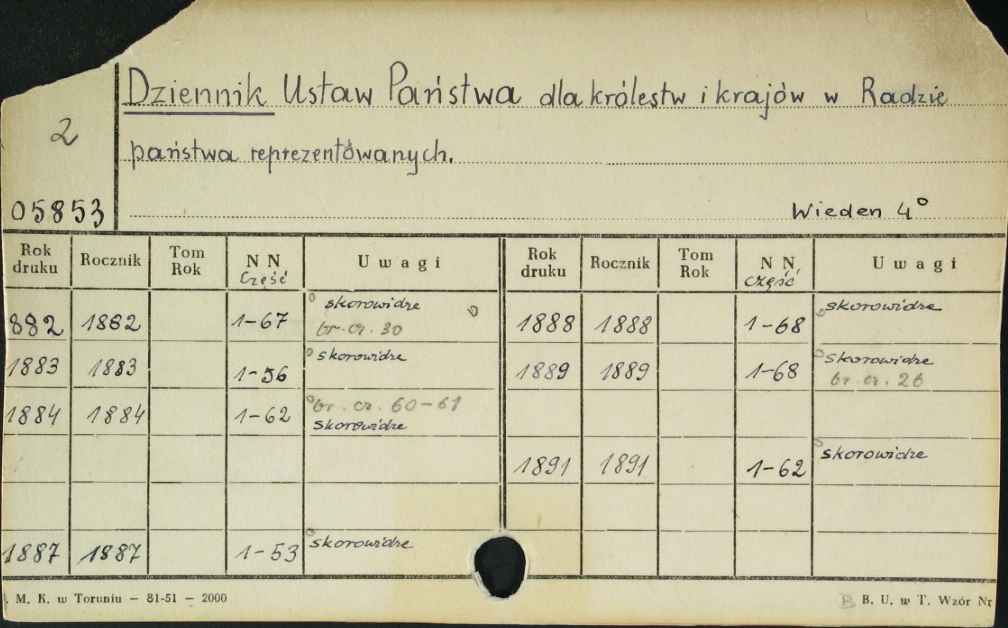 Dziennik Ustaw Państwa dla królestw i krajów w Radzie
2
państwa reprezentowanych.
05853
Wieden 4°
Rok druku Rocznik Tom Rok N N Część Uwagi Rok druku Rocznik Tom Rok N N część Uwagi
882 1882 1-67 skorowidze br. cz. 30 1888 1888 1-68 skorowidze
1883 1883 1-56 skorowidze 1889 1889 1-68 skorowidze br. cz. 26
1884 1884 1-62 br. cz. 60-61 skorowidze
1891 1891 1-62 skorowidze
1887 1887 1-53 skorowidze
M. K. w Toruniu — 81-51 — 2000
B. U. w T. Wzór Nr